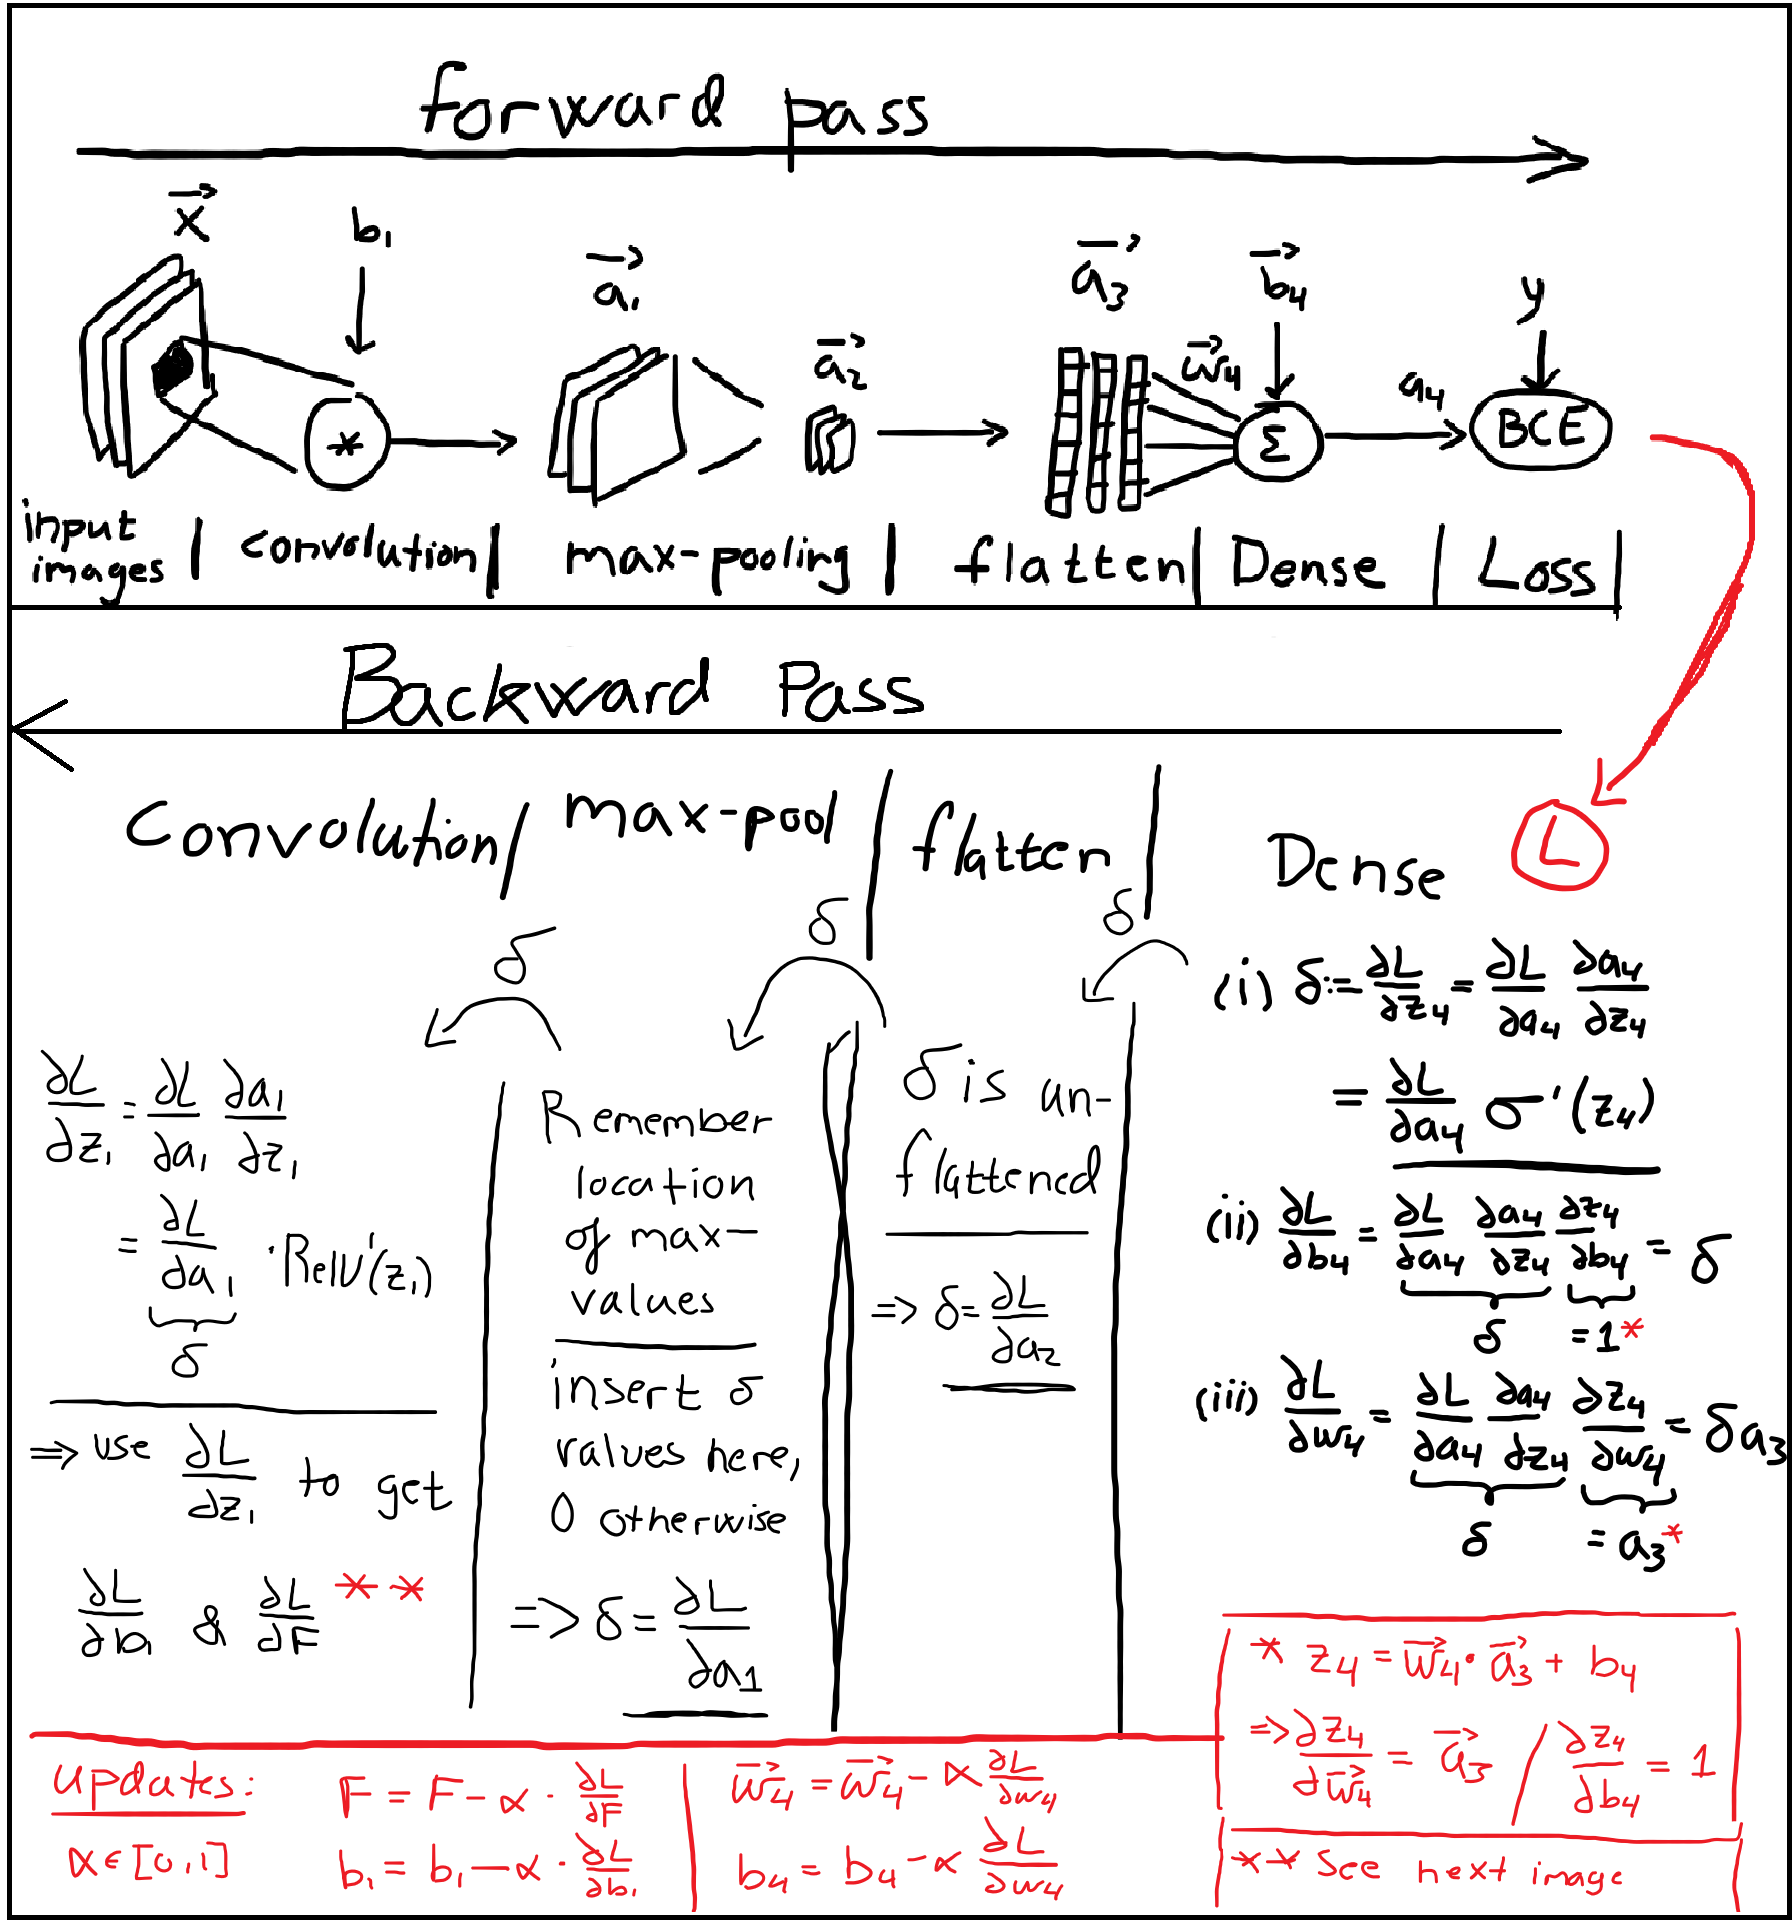 forward pass
x⃗ b₁ a⃗₁ a⃗₂ a⃗₃ w⃗₄ b⃗₄ a₄ y
* Σ BCE
input images | convolution | max-pooling | flatten | Dense | Loss |
Backward Pass
Convolution / max-pool / flatten | Dense L
δ δ δ
∂L/∂z₁ = ∂L/∂a₁ ∂a₁/∂z₁
= ∂L/∂a₁ · Relu'(z₁)
δ
=> use ∂L/∂z₁ to get
∂L/∂b₁ & ∂L/∂F **
Remember
location
of max-
values
insert δ
values here,
0 otherwise
=> δ = ∂L/∂a1
δ is un-
flattened
=> δ = ∂L/∂a₂
(i) δ := ∂L/∂z₄ = ∂L/∂a₄ ∂a₄/∂z₄
= ∂L/∂a₄ σ'(z₄)
(ii) ∂L/∂b₄ = ∂L/∂a₄ ∂a₄/∂z₄ ∂z₄/∂b₄ = δ
δ = 1*
(iii) ∂L/∂w₄ = ∂L/∂a₄ ∂a₄/∂z₄ ∂z₄/∂w₄ = δa₃
δ = a₃*
* z₄ = w⃗₄ · a⃗₃ + b₄
=> ∂z₄/∂w⃗₄ = a⃗₃ / ∂z₄/∂b₄ = 1
** See next image
updates:
α ∈ [0,1]
F = F - α · ∂L/∂F
b₁ = b₁ - α · ∂L/∂b₁
w⃗₄ = w⃗₄ - α ∂L/∂w₄
b₄ = b₄ - α ∂L/∂w₄